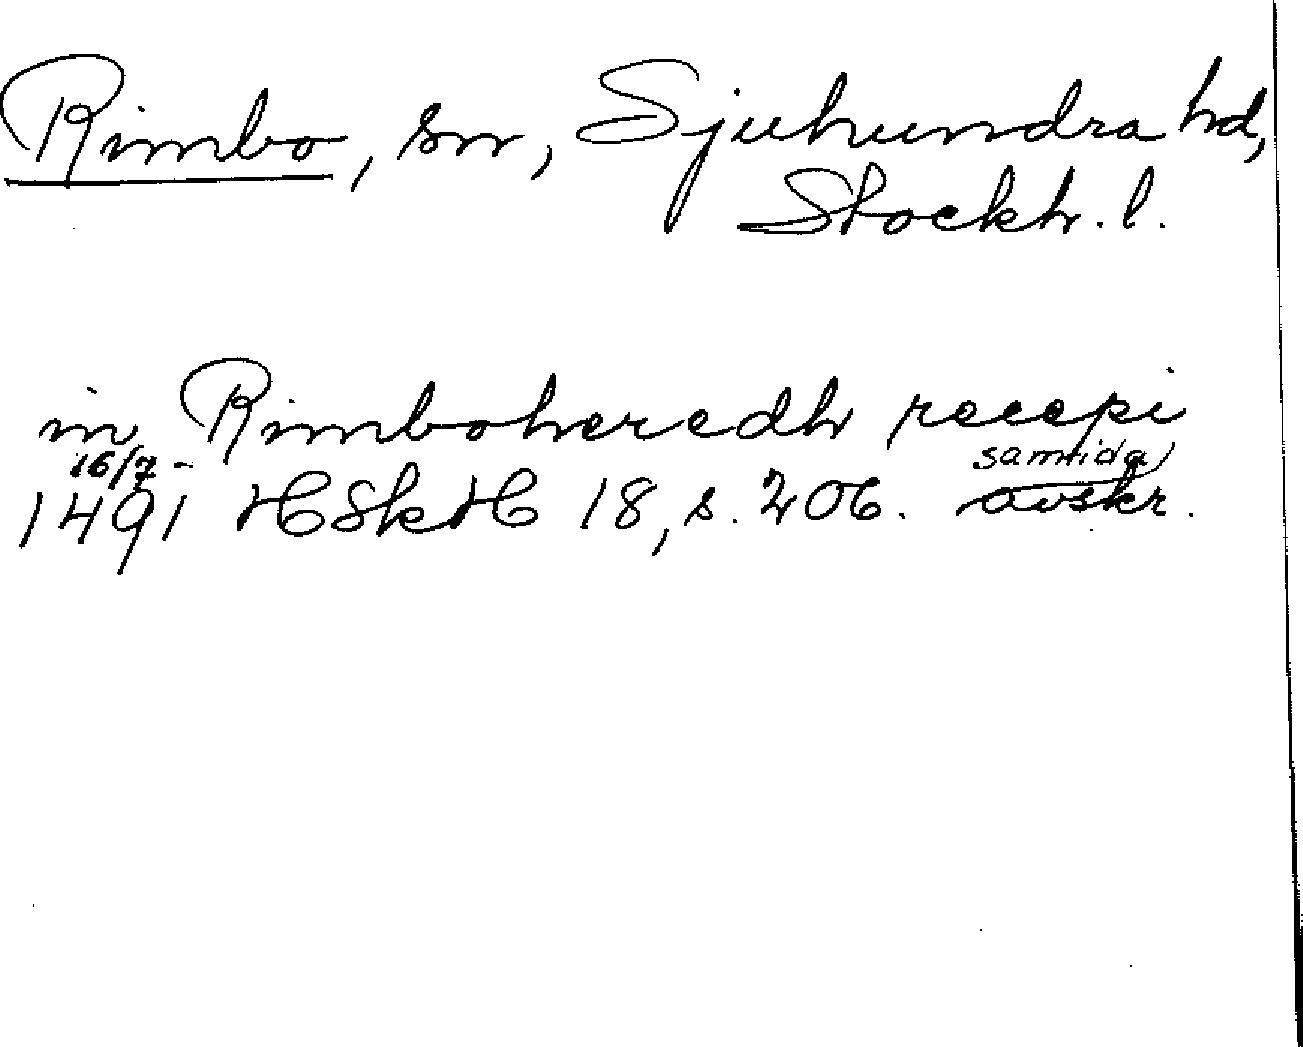 Rimbo, sn, Sjuhundra hd,
Stockh. l.
in Rimboheredh recepi
16/7 - samtida
1491 HSkH 18, s. 206. avskr.